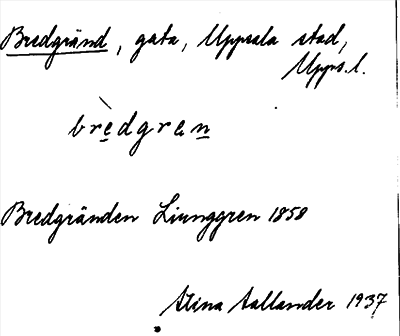 Bredgränd, gata, Uppsala stad,
Upps. l.
brèdgren
Bredgränden Ljunggren 1858
Stina Aallander 1937